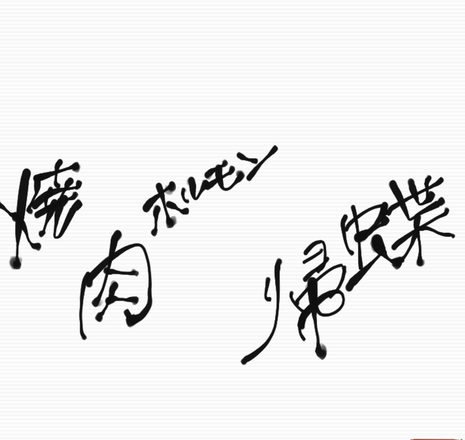 焼肉
ホルモン
帰蝶